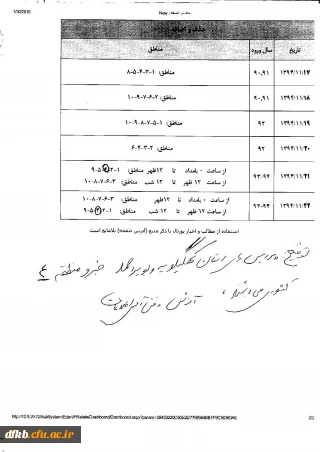 1/30/2016
حذف و اضافه : New
حذف و اضافه
تاریخ سال ورود مناطق
۱۳۹۴/۱۱/۱۷ ۹۰،۹۱ مناطق: ۱-۳-۴-۵-۸
۱۳۹۴/۱۱/۱۸ ۹۰،۹۱ مناطق: ۲-۶-۷-۹-۱۰
۱۳۹۴/۱۱/۱۹ ۹۲ مناطق: ۱-۵-۷-۸-۹-۱۰
۱۳۹۴/۱۱/۲۰ ۹۲ مناطق: ۲-۳-۴-۶
۱۳۹۴/۱۱/۲۱ ۹۳-۹۴ از ساعت ۰ بامداد تا ۱۲ظهر مناطق: ۱-۲-۴-۵-۹
از ساعت ۱۲ ظهر تا ۱۲ شب مناطق: ۳-۶-۷-۸-۱۰
۱۳۹۴/۱۱/۲۲ ۹۳-۹۴ از ساعت ۰ بامداد تا ۱۲ظهر مناطق: ۳-۶-۷-۸-۱۰
از ساعت ۱۲ ظهر تا ۱۲ شب مناطق: ۱-۲-۴-۵-۹
استفاده از مطالب و اخبار پورتال با ذکر منبع (آدرس صفحه) بلامانع است
توضیح: پردیس های استان کهگیلویه و بویراحمد جزو منطقه ۴
کشوری می باشند،
2/2
dfkb.cfu.ac.ir